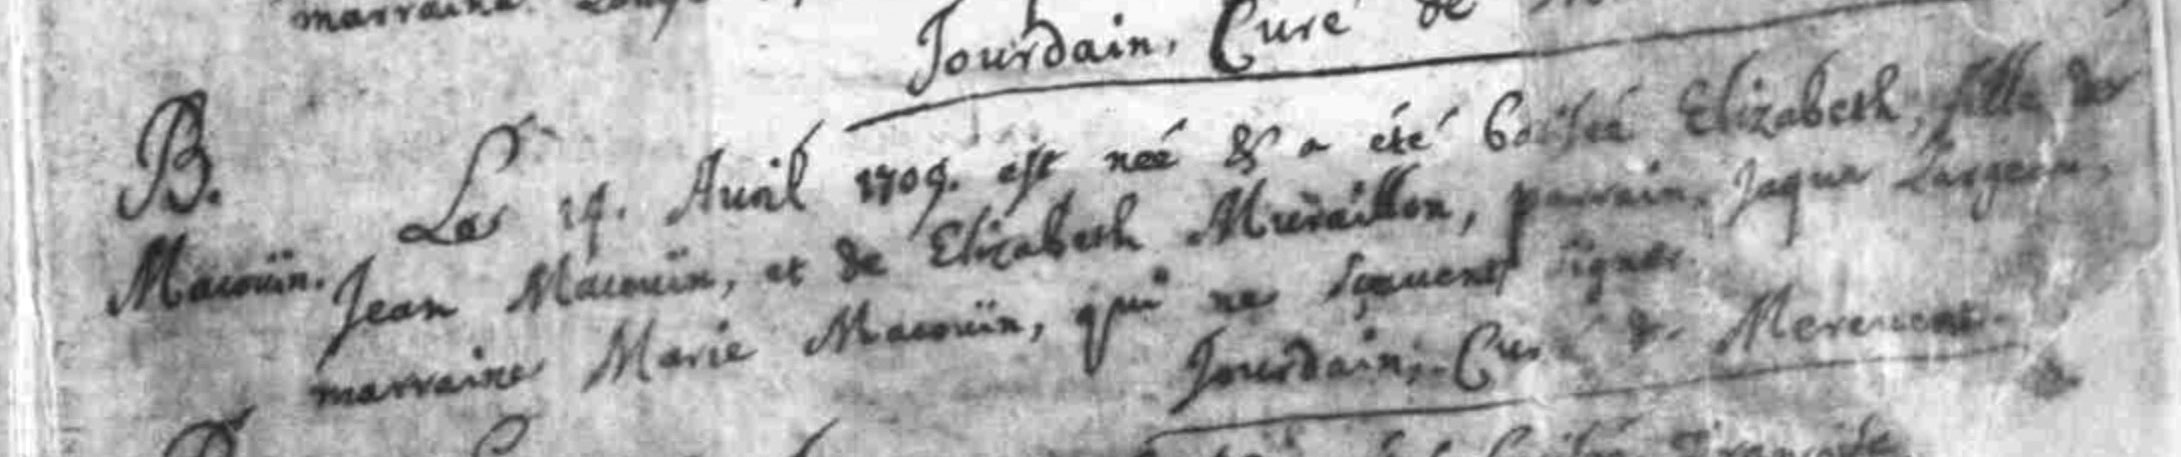 marraine
Jourdain, Curé de
B. Le 14. Auril 1709. est née & a été batisée Elizabeth, fille de
Macoüin. Jean Macoüin, et de Elizabeth Muraillon, parrain, Jaque Largeau,
marraine Marie Macoüin, qui ne sçauent signer.
Jourdain, Curé de Mereuent.